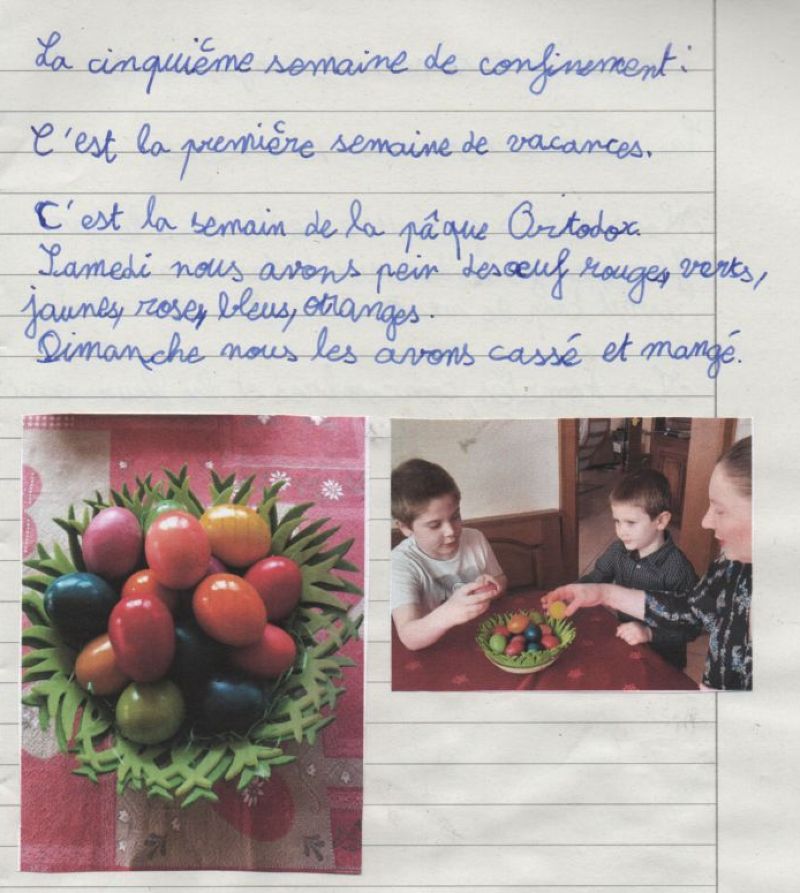 La cinquième semaine de confinement :
C'est la première semaine de vacances.
C'est la semain de la pâque Ortodox.
Samedi nous avons peir des œuf rouges, verts,
jaunes, roses, bleus, oranges.
Dimanche nous les avons cassé et mangé.